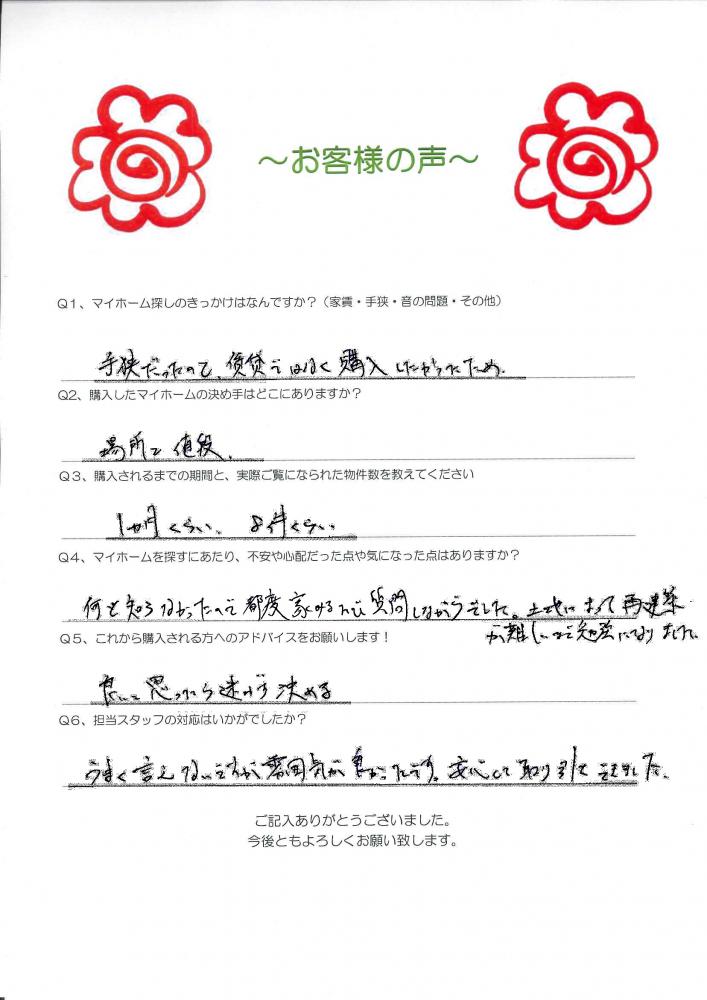 ～お客様の声～
Q1、マイホーム探しのきっかけはなんですか？（家賃・手狭・音の問題・その他）
手狭だったので、賃貸ではなく購入したかったため。
Q2、購入したマイホームの決め手はどこにありますか？
場所と値段。
Q3、購入されるまでの期間と、実際ご覧になられた物件数を教えてください
1か月くらい、8件くらい。
Q4、マイホームを探すにあたり、不安や心配だった点や気になった点はありますか？
何も知らなかったので都度 質問しながらでした。土地によって再建築
が難しいので勉強になりました。
Q5、これから購入される方へのアドバイスをお願いします！
良いと思ったら迷わず決める
Q6、担当スタッフの対応はいかがでしたか？
うまく言えないですが雰囲気が良かったです。安心して取り引きできました。
ご記入ありがとうございました。
今後ともよろしくお願い致します。